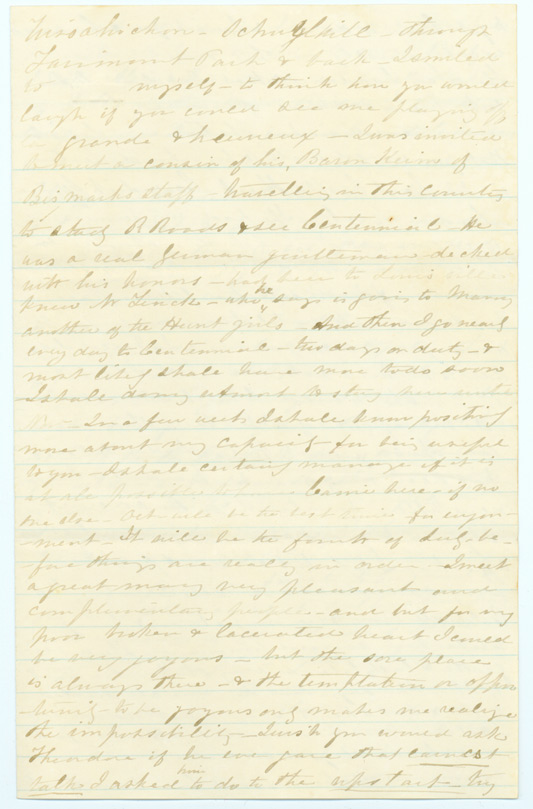 Wissahickon - Schuylkill - through
Fairmount Park & back - I smiled
to myself - to think how you would
laugh if you could see me playing off
- grande & heureux - I was invited
to meet a cousin of his, Baron Keim of
Bismarks staff - travelling in this country
to study R Roads & see Centennial - He
was a real German gentleman decked
with his honors - had been to Louisville
knew Mr Linck - who he says is going to marry
another of the Hunt girls - And then I go nearly
every day to Centennial - two days on duty - &
most likely shall have more to do soon
I shall do my utmost to stay here until
In a few weeks I shall know positively
more about my capacity for being useful
to you - I shall certainly manage if it is
at all possible to have Carrie here - if no
one else - Oct will be the best time for enjoy-
-ment - It will be the fourth of July be-
fore things are really in order - I meet
a great many very pleasant and
complimentary people - and but for my
poor broken & lacerated heart I could
be very joyous - but the sore place
is always there - & the temptation or oppor
-tunity to be joyous only makes me realize
the impossibility - I wish you would ask
Theodore if he ever gave that earnest
talk I asked him to do to the upstart - try